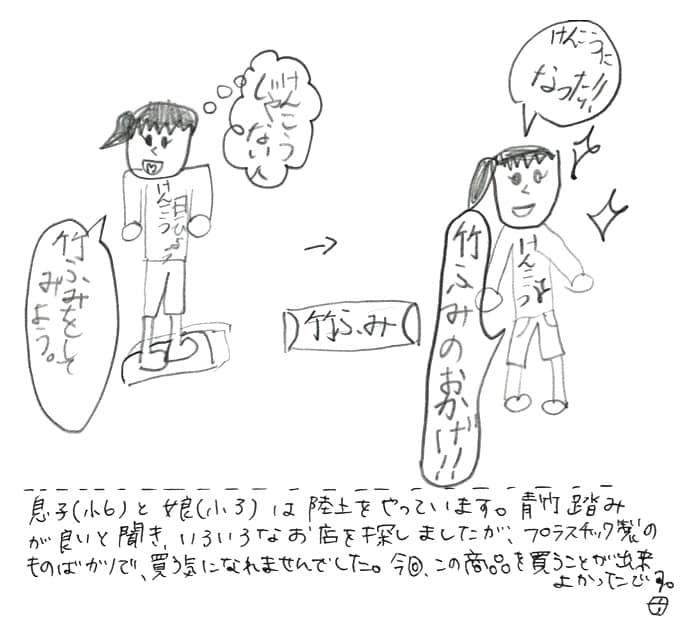 けんこう
じゃ
ない人
けんこう
目ひょう
竹ふみをして
みよう。
竹ふみ
けんこうに
なった!!
けんこう
竹ふみのおかげ!!
息子(小6)と娘(小3)は陸上をやっています。青竹踏み
が良いと聞き、いろいろなお店を探しましたが、プラスチック製の
ものばかりで、買う気になれませんでした。今回、この商品を買うことが出来
よかったです。